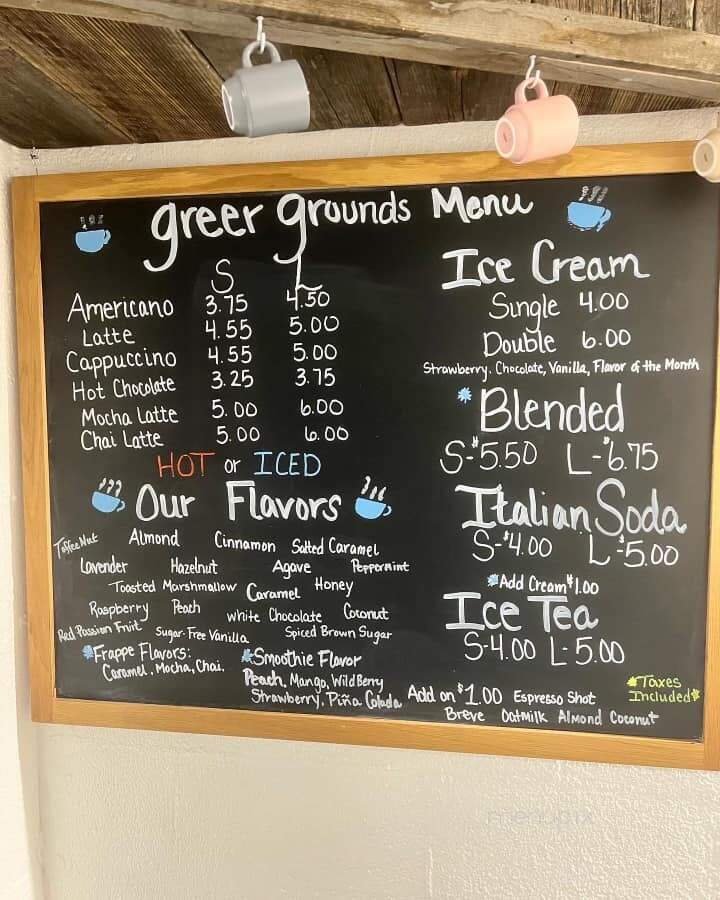 greer grounds Menu
S L
Americano 3.75 4.50
Latte 4.55 5.00
Cappuccino 4.55 5.00
Hot Chocolate 3.25 3.75
Mocha Latte 5.00 6.00
Chai Latte 5.00 6.00
HOT or ICED
Our Flavors
Toffee Nut Almond Cinnamon Salted Caramel
Lavender Hazelnut Agave Peppermint
Toasted Marshmallow Caramel Honey
Raspberry Peach White Chocolate Coconut
Red Passion Fruit Sugar-Free Vanilla Spiced Brown Sugar
*Frappe Flavors:
Caramel, Mocha, Chai.
*Smoothie Flavor
Peach, Mango, Wild Berry
Strawberry, Piña Colada
Ice Cream
Single 4.00
Double 6.00
Strawberry, Chocolate, Vanilla, Flavor of the Month
*Blended
S-$5.50 L-$6.75
Italian Soda
S-$4.00 L-$5.00
*Add Cream $1.00
Ice Tea
S-4.00 L-5.00
*Taxes
Included*
Add on $1.00 Espresso Shot
Breve Oatmilk Almond Coconut
menupix